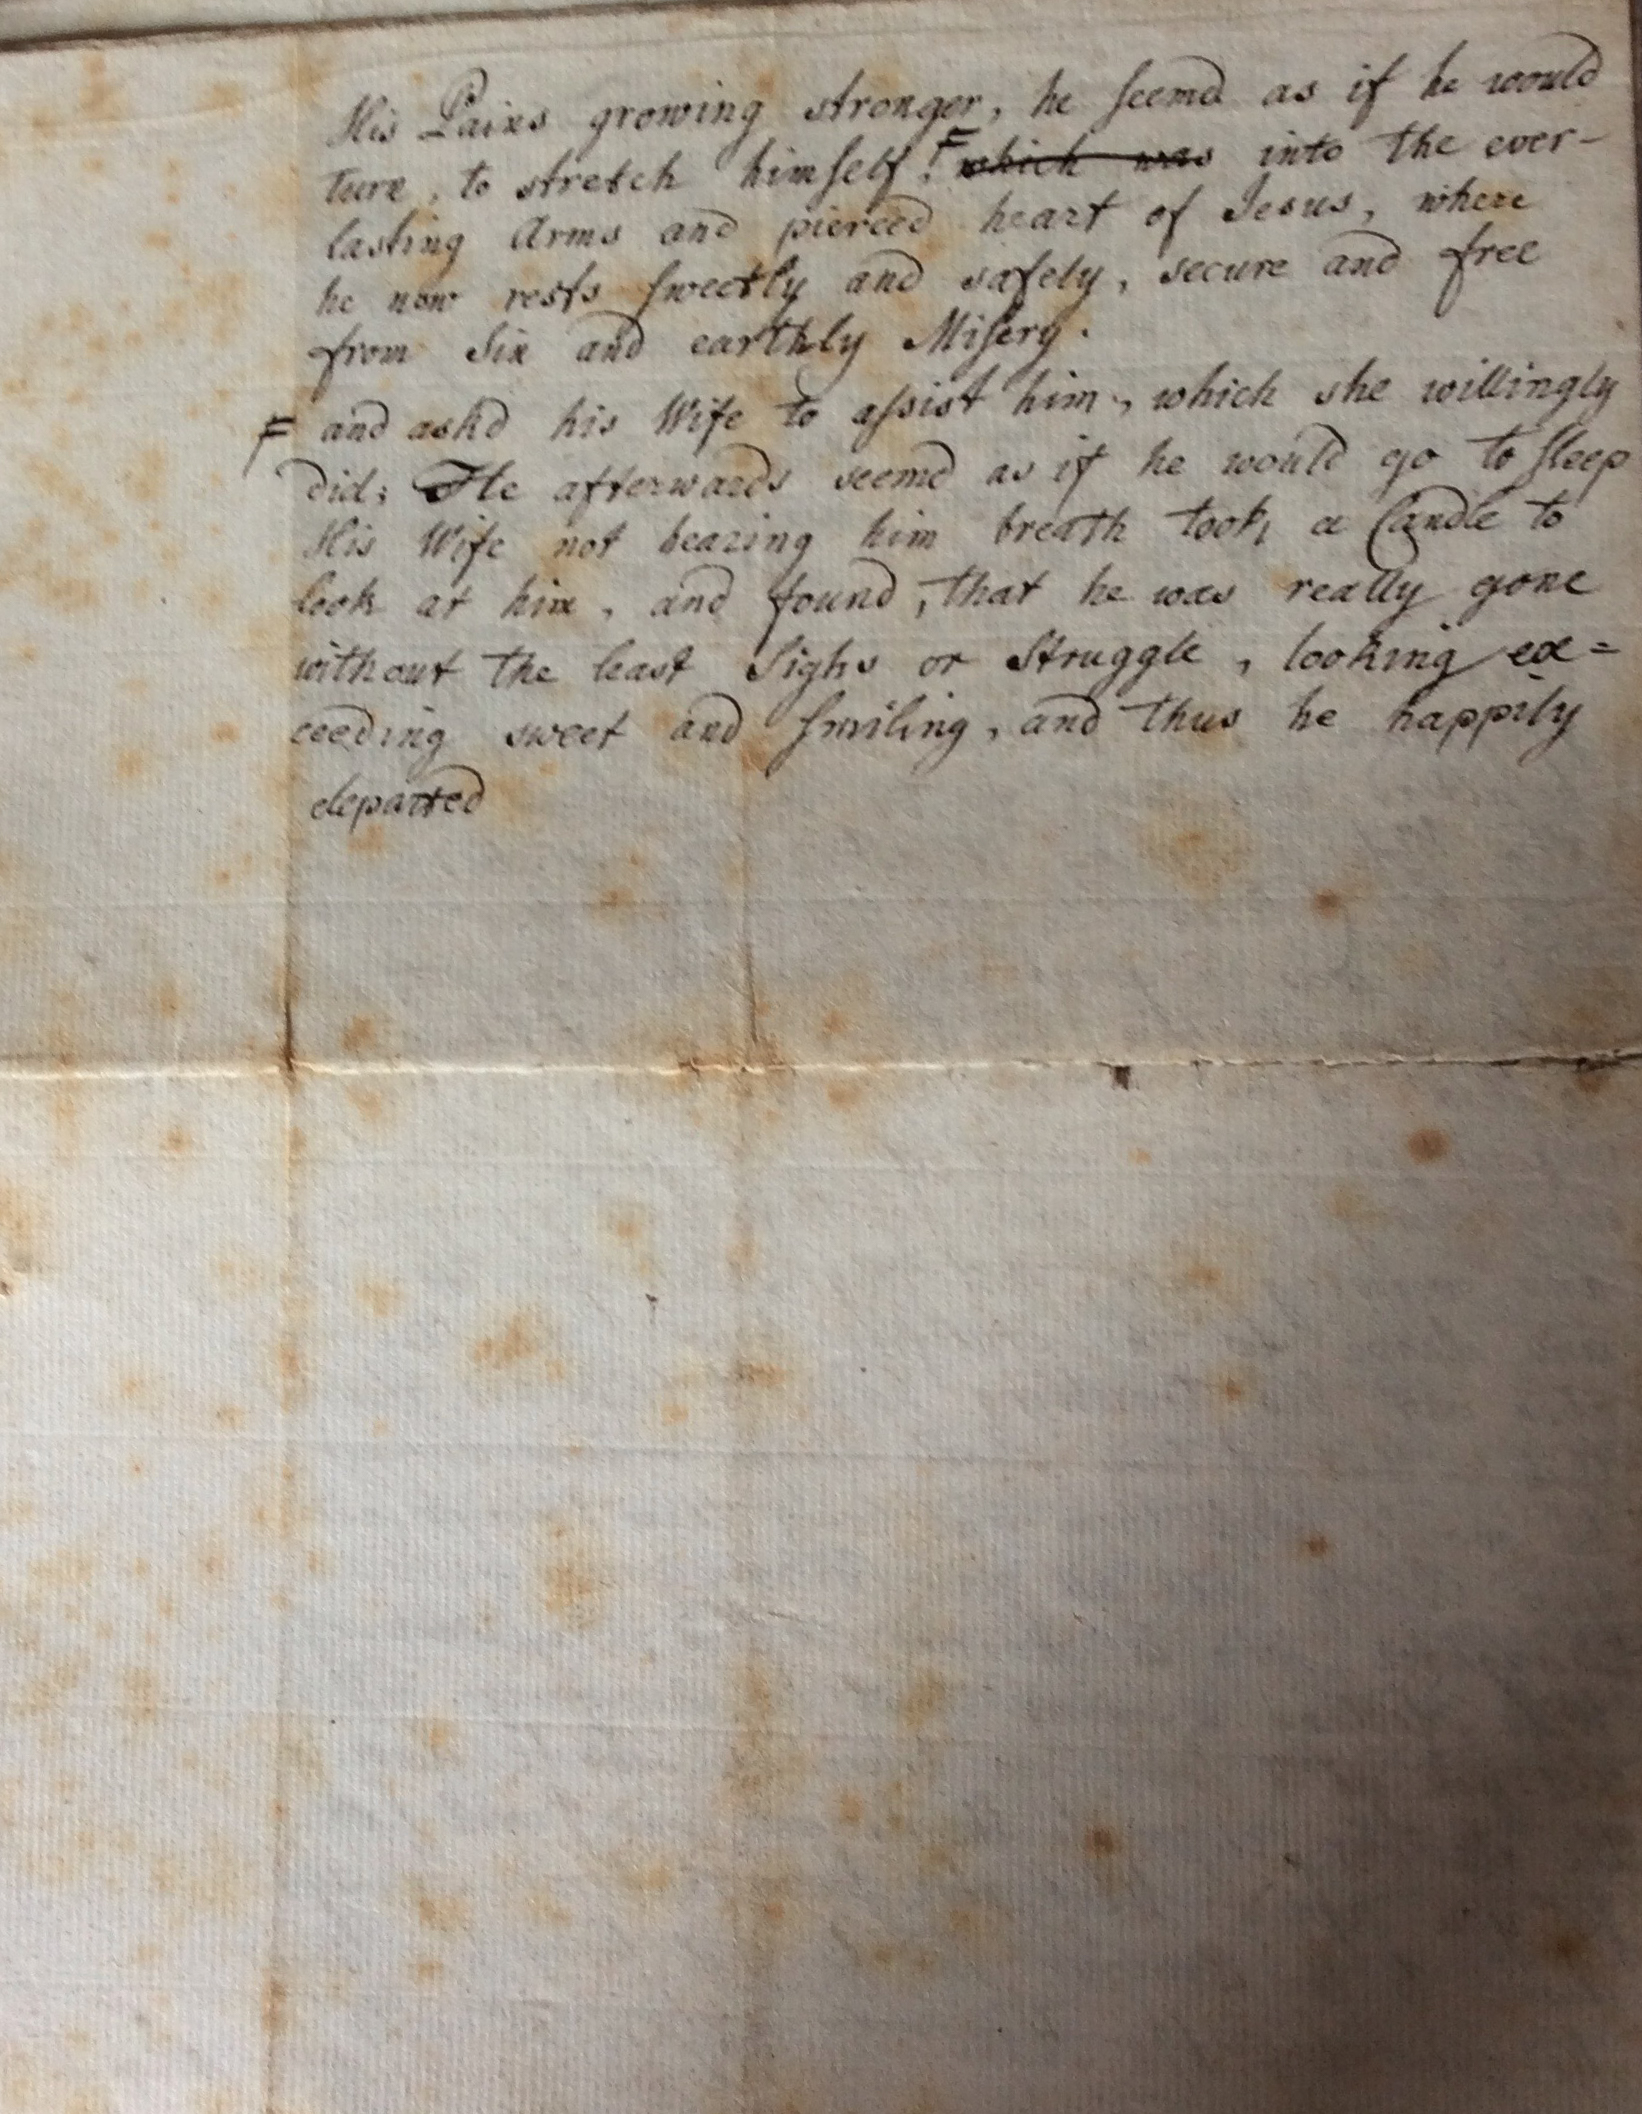 His Pains growing stronger, he seemd as if he would
turn, to stretch himself. F which was into the ever-
lasting Arms and pierced heart of Jesus, where
he now rests sweetly and safely, secure and free
from Sin and earthly Misery.
F and ask'd his Wife to assist him, which she willingly
did; He afterwards seemd as if he would go to sleep
His Wife not hearing him breath took a Candle to
look at him, and found, that he was really gone
without the least Sighs or Struggle, looking ex=
ceeding sweet and smiling, and thus he happily
departed